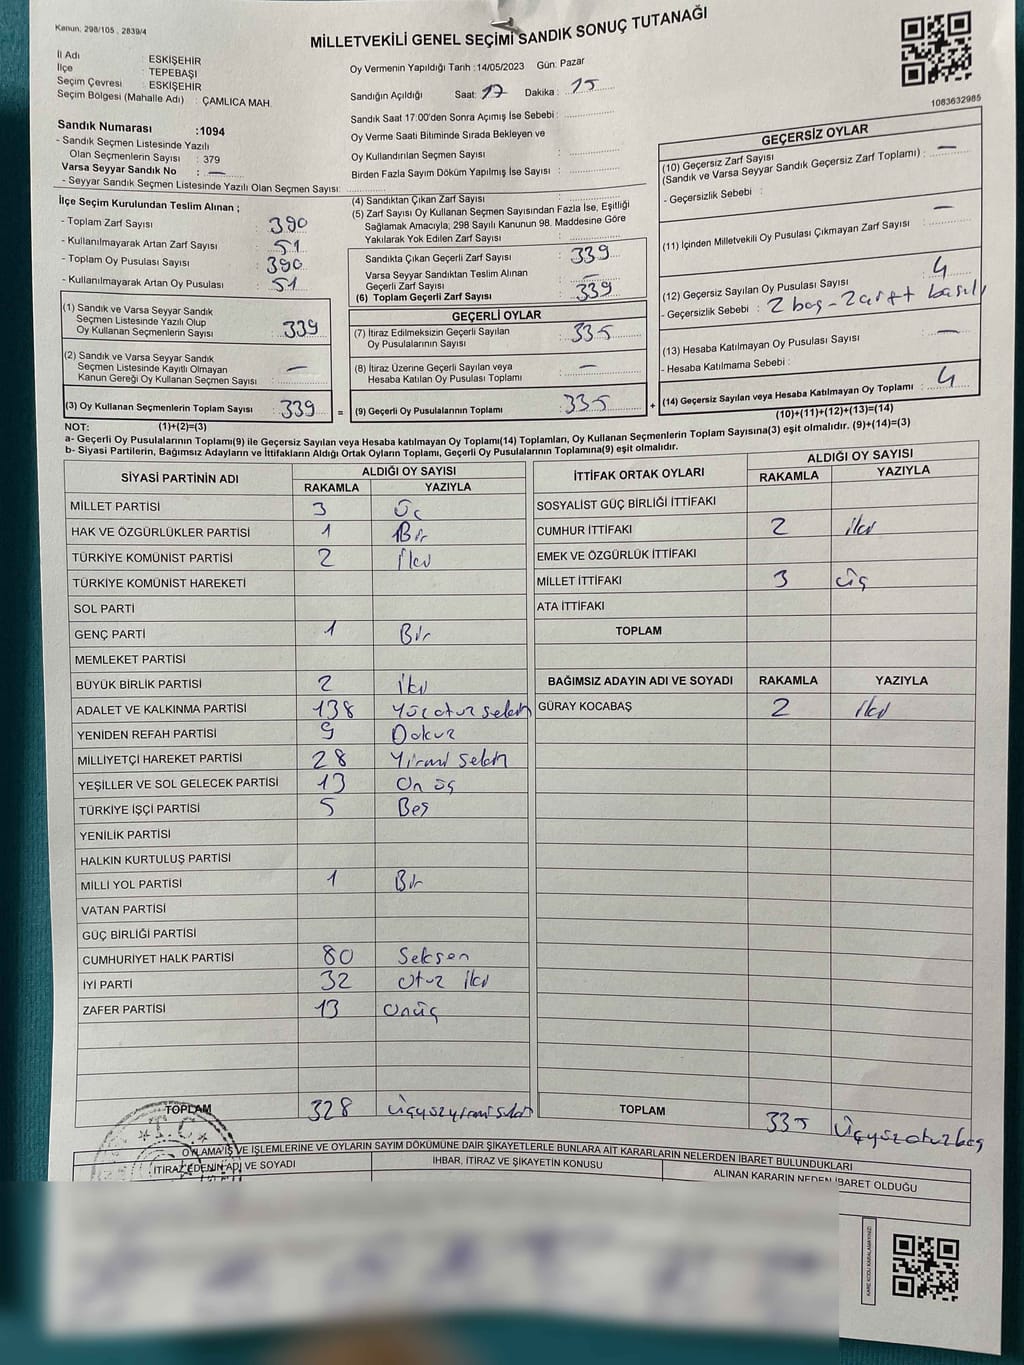 Kanun: 298/105 , 2839/4
MİLLETVEKİLİ GENEL SEÇİMİ SANDIK SONUÇ TUTANAĞI
İl Adı : ESKİŞEHİR
İlçe : TEPEBAŞI
Seçim Çevresi : ESKİŞEHİR
Seçim Bölgesi (Mahalle Adı) : ÇAMLICA MAH.
Sandık Numarası :1094
- Sandık Seçmen Listesinde Yazılı
Olan Seçmenlerin Sayısı : 379
Varsa Seyyar Sandık No : —
- Seyyar Sandık Seçmen Listesinde Yazılı Olan Seçmen Sayısı:
Oy Vermenin Yapıldığı Tarih :14/05/2023 Gün: Pazar
Sandığın Açıldığı Saat: 17 Dakika : 15
Sandık Saat 17:00'den Sonra Açımış İse Sebebi :
Oy Verme Saati Bitiminde Sırada Bekleyen ve
Oy Kullandırılan Seçmen Sayısı :
Birden Fazla Sayım Döküm Yapılmış İse Sayısı :
1083632985
İlçe Seçim Kurulundan Teslim Alınan ;
- Toplam Zarf Sayısı : 390
- Kullanılmayarak Artan Zarf Sayısı : 51
- Toplam Oy Pusulası Sayısı : 390
- Kullanılmayarak Artan Oy Pusulası : 51
(1) Sandık ve Varsa Seyyar Sandık
Seçmen Listesinde Yazılı Olup
Oy Kullanan Seçmenlerin Sayısı : 339
(2) Sandık ve Varsa Seyyar Sandık
Seçmen Listesinde Kayıtlı Olmayan
Kanun Gereği Oy Kullanan Seçmen Sayısı : —
(3) Oy Kullanan Seçmenlerin Toplam Sayısı : 339 =
(4) Sandıktan Çıkan Zarf Sayısı :
(5) Zarf Sayısı Oy Kullanan Seçmen Sayısından Fazla İse, Eşitliği
Sağlamak Amacıyla; 298 Sayılı Kanunun 98. Maddesine Göre
Yakılarak Yok Edilen Zarf Sayısı :
Sandıkta Çıkan Geçerli Zarf Sayısı : 339
Varsa Seyyar Sandıktan Teslim Alınan
Geçerli Zarf Sayısı : —
(6) Toplam Geçerli Zarf Sayısı : 339
GEÇERLİ OYLAR
(7) İtiraz Edilmeksizin Geçerli Sayılan
Oy Pusulalarının Sayısı : 335
(8) İtiraz Üzerine Geçerli Sayılan veya
Hesaba Katılan Oy Pusulası Toplamı : —
(9) Geçerli Oy Pusulalarının Toplamı : 335 +
GEÇERSİZ OYLAR
(10) Geçersiz Zarf Sayısı
(Sandık ve Varsa Seyyar Sandık Geçersiz Zarf Toplamı) : —
- Geçersizlik Sebebi :
(11) İçinden Milletvekili Oy Pusulası Çıkmayan Zarf Sayısı : —
(12) Geçersiz Sayılan Oy Pusulası Sayısı : 4
- Geçersizlik Sebebi : 2 boş - 2 basılı
(13) Hesaba Katılmayan Oy Pusulası Sayısı : —
- Hesaba Katılmama Sebebi :
(14) Geçersiz Sayılan veya Hesaba Katılmayan Oy Toplamı : 4
(10)+(11)+(12)+(13)=(14)
NOT: (1)+(2)=(3)
a- Geçerli Oy Pusulalarının Toplamı(9) ile Geçersiz Sayılan veya Hesaba katılmayan Oy Toplamı(14) Toplamları, Oy Kullanan Seçmenlerin Toplam Sayısına(3) eşit olmalıdır. (9)+(14)=(3)
b- Siyasi Partilerin, Bağımsız Adayların ve İttifakların Aldığı Ortak Oyların Toplamı, Geçerli Oy Pusulalarının Toplamına(9) eşit olmalıdır.
SİYASİ PARTİNİN ADI ALDIĞI OY SAYISI
RAKAMLA YAZIYLA
MİLLET PARTİSİ 3 Üç
HAK VE ÖZGÜRLÜKLER PARTİSİ 1 Bir
TÜRKİYE KOMÜNİST PARTİSİ 2 İki
TÜRKİYE KOMÜNİST HAREKETİ
SOL PARTİ
GENÇ PARTİ 1 Bir
MEMLEKET PARTİSİ
BÜYÜK BİRLİK PARTİSİ 2 İki
ADALET VE KALKINMA PARTİSİ 138 Yüzotuzsekiz
YENİDEN REFAH PARTİSİ 9 Dokuz
MİLLİYETÇİ HAREKET PARTİSİ 28 Yirmi sekiz
YEŞİLLER VE SOL GELECEK PARTİSİ 13 On üç
TÜRKİYE İŞÇİ PARTİSİ 5 Beş
YENİLİK PARTİSİ
HALKIN KURTULUŞ PARTİSİ
MİLLİ YOL PARTİSİ 1 Bir
VATAN PARTİSİ
GÜÇ BİRLİĞİ PARTİSİ
CUMHURİYET HALK PARTİSİ 80 Seksen
İYİ PARTİ 32 Otuz iki
ZAFER PARTİSİ 13 Onüç
TOPLAM 328 Üçyüzyirmisekiz
İTTİFAK ORTAK OYLARI ALDIĞI OY SAYISI
RAKAMLA YAZIYLA
SOSYALİST GÜÇ BİRLİĞİ İTTİFAKI
CUMHUR İTTİFAKI 2 iki
EMEK VE ÖZGÜRLÜK İTTİFAKI
MİLLET İTTİFAKI 3 üç
ATA İTTİFAKI
TOPLAM
BAĞIMSIZ ADAYIN ADI VE SOYADI RAKAMLA YAZIYLA
GÜRAY KOCABAŞ 2 iki
TOPLAM 335 Üçyüzotuzbeş
T.C.
OYLAMA İŞ VE İŞLEMLERİNE VE OYLARIN SAYIM DÖKÜMÜNE DAİR ŞİKAYETLERLE BUNLARA AİT KARARLARIN NELERDEN İBARET BULUNDUKLARI
İTİRAZ EDENİN ADI VE SOYADI İHBAR, İTİRAZ VE ŞİKAYETİN KONUSU ALINAN KARARIN NEDEN İBARET OLDUĞU
KARE KODU KARALAMAYINIZ!